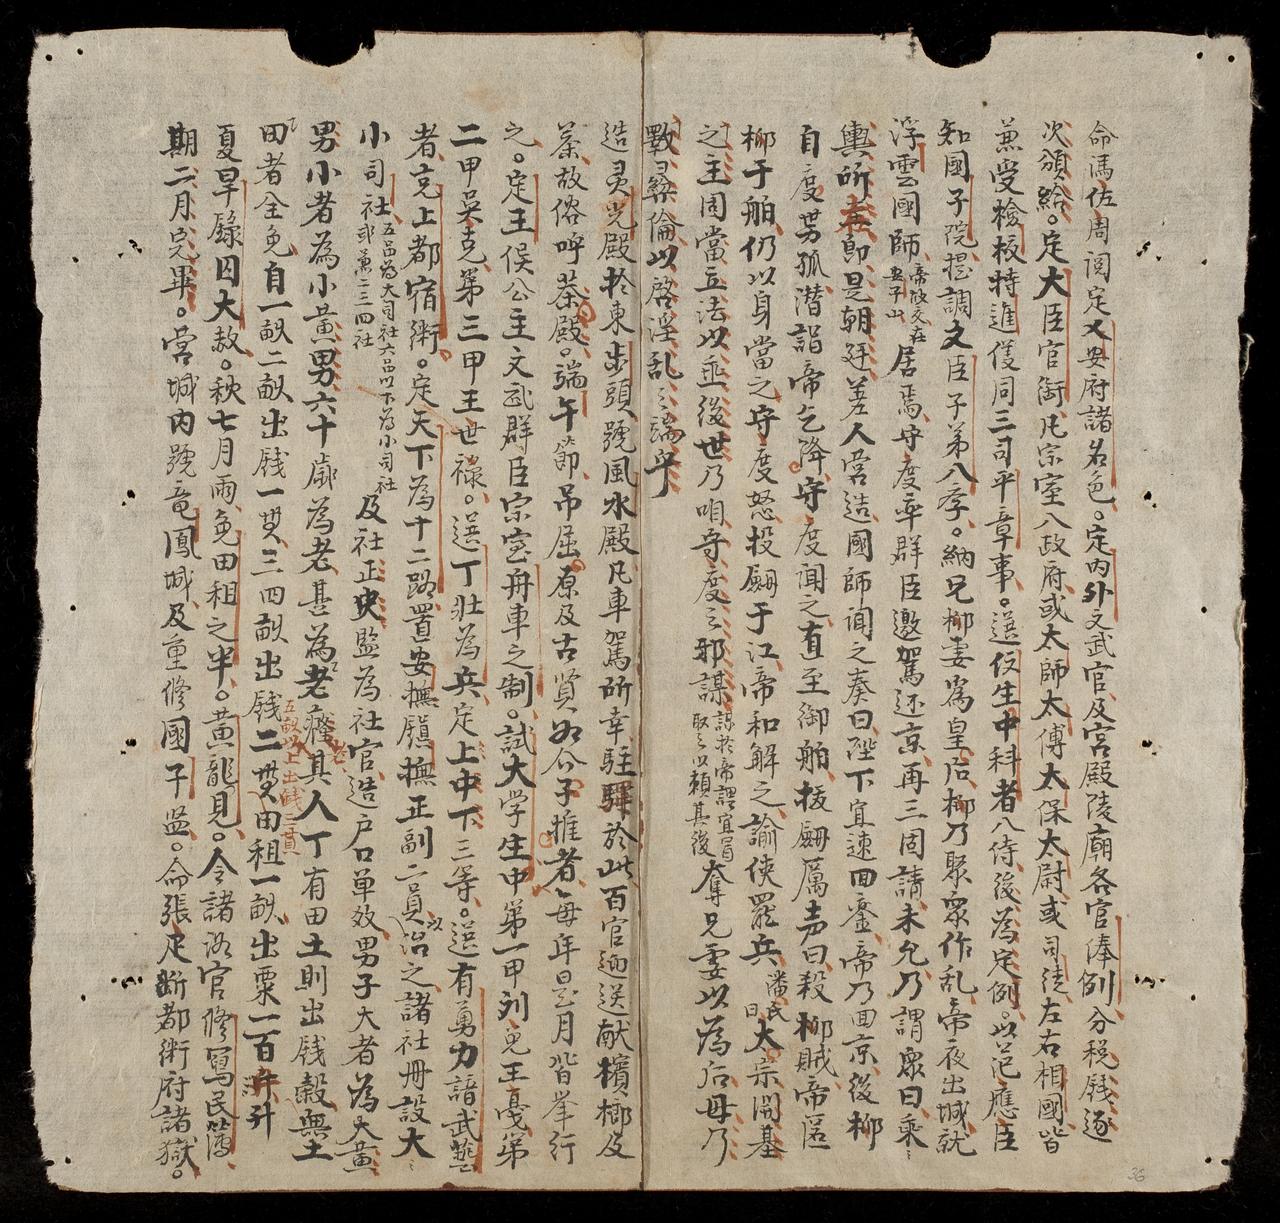 命馮佐周閱定乂安府諸名色。定內外文武官及宮殿陵廟各官俸例分稅錢逐
次頒給。定大臣官銜凡宗室入政府或太師太傅太保太尉或司徒左右相國皆
兼受檢校特進儀同三司平章事。選仗生中科者入侍後為定例。以范應臣
知國子院提調文臣子弟入季。納兄柳妻為皇后柳乃聚眾作乱帝夜出城就
浮雲國師帝故交在安子山居焉守度率群臣邀駕还京再三固請未允乃謂眾曰乘
輿所在即是朝廷差人营造國師闻之奏曰陛下宜速回鑾帝乃回京後柳
自度势孤潜詣帝乞降守度闻之直至御舶拔劒厲声曰殺柳賊帝匿
柳于舶仍以身當之守度怒投劒于江帝和解之諭使罷兵潘氏曰太宗開基
之主固當立法以垂後世乃咱守度之邪謀謀於帝謂宜冒取之以賴其後奪兄妻以為后毋乃
斁彞倫以啓淫乱之端乎
造灵光殿於東步頭號風水殿凡車駕所幸駐驛於此百官迎送献檳榔及
茶故俗呼茶殿。端午節吊屈原及古賢如介子推者每年是月皆举行
之。定王侯公主文武群臣宗室舟車之制。試大学生中第一甲列児王戞第
二甲吴克第三甲王世祿。選丁壮為兵定上中下三等。選有勇力諳武藝
者充上都宿衛。定天下為十二路置安撫鎮撫正副二員以治之諸社冊設大〻
小司社五品為大司社六品以下為小司社或兼二三四社及社正史監為社官造户口单效男子大者為大黄
男小者為小黄男六十嵗為老甚為老癃具人丁有田土則出錢穀無土
田者全免自一畝二畝出錢一貫三四畝出錢二貫五畝以上出錢三貫田租一畝出粟一百升
夏旱錄囚大赦。秋七月雨免田租之半。黄龍見。令諸洛官修寫民簿
期二月完畢。营城內號竜鳳城及重修國子监。命張疋断都衛府諸獄。
36